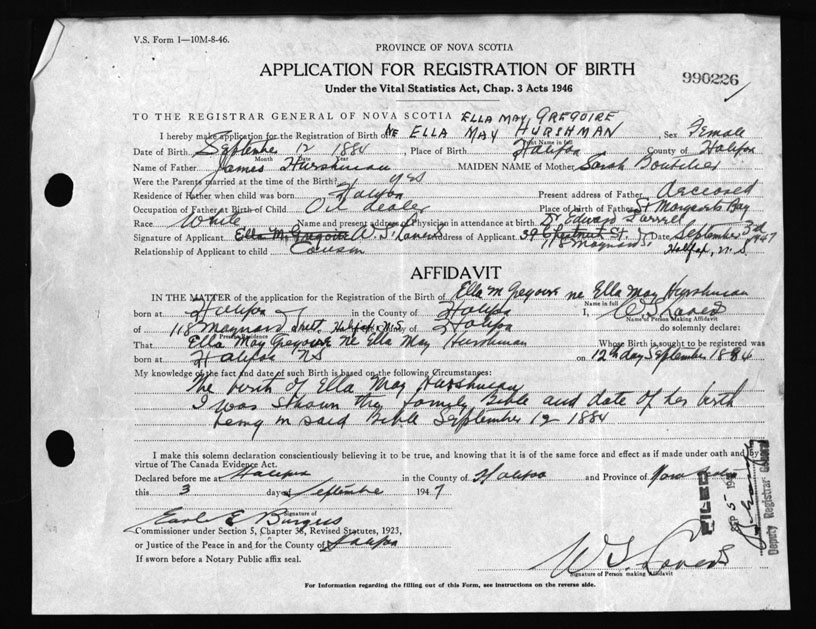 V.S. Form 1—10M-8-46.
PROVINCE OF NOVA SCOTIA
APPLICATION FOR REGISTRATION OF BIRTH
990226
Under the Vital Statistics Act, Chap. 3 Acts 1946
TO THE REGISTRAR GENERAL OF NOVA SCOTIA ELLA MAY GREGOIRE
I hereby make application for the Registration of Birth of NE ELLA MAY HURSHMAN, Sex Female
Print Name in full
Date of Birth September 12 1884, Place of Birth Halifax County of Halifax
Month Date Year
Name of Father James Hurshman MAIDEN NAME of Mother Sarah Boutilier
Were the Parents married at the time of the Birth? yes
Residence of Father when child was born Halifax Present address of Father deceased
Occupation of Father at Birth of Child Oil dealer Place of birth of Father St Margarets Bay
Race White Name and present address of Physician in attendance at birth Dr Edward Farrell
Signature of Applicant Ella M. Gregoire Address of Applicant 39 Chestnut St. Date September 3rd 1947
118 Maynard St Halifax, N.S.
Relationship of Applicant to child Cousin
AFFIDAVIT
IN THE MATTER of the application for the Registration of Birth of Ella M Gregoire ne Ella May Hurshman
Name in full
born at Halifax in the County of Halifax I,
Name of Person Making Affidavit
of 118 Maynard Street, Halifax N.S. County of Halifax do solemnly declare:
That Ella May Gregoire ne Ella May Hurshman Whose Birth is sought to be registered was
born at Halifax NS on 12th day September 1884
My knowledge of the fact and date of such Birth is Based on the following Circumstances:
The birth of Ella May Hurshman
I was shown the family Bible and date of her birth
being in said Bible September 12 1884
I make this solemn declaration conscientiously believing it to be true, and knowing that it is of the same force and effect as if made under oath and by
virtue of The Canada Evidence Act.
Declared before me at Halifax in the County of Halifax and Province of Nova Scotia
this 3 day of September 1947
Signature of
Earle E Burgess
Commissioner under Section 5, Chapter 38, Revised Statutes, 1923,
or Justice of the Peace in and for the County of Halifax
If sworn before a Notary Public affix seal.
Signature of Person making Affidavit
FILED
SEP 5 1947
Deputy Registrar General
For Information regarding the filling out of this Form, see instructions on the reverse side.